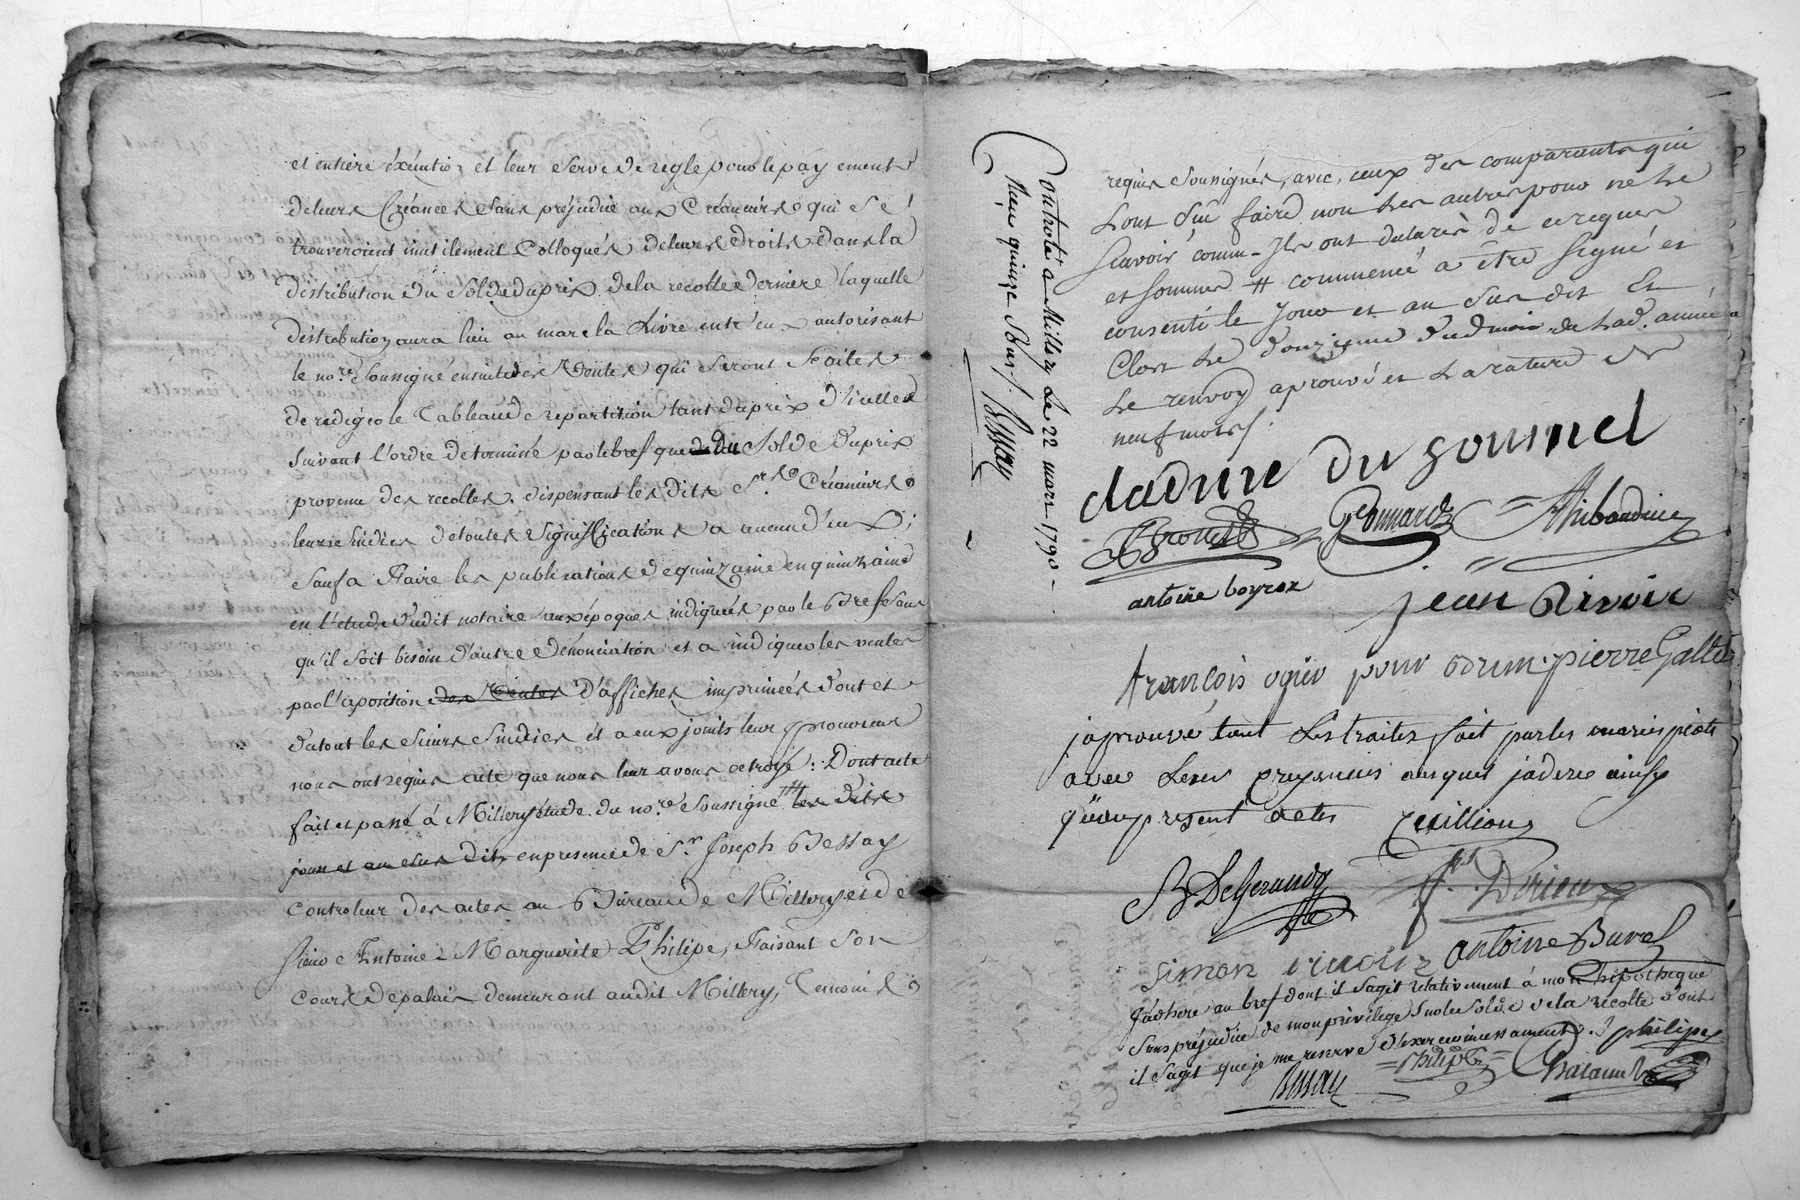 et entiere éxécution et leur serve de regle pour le payement
de leurs Créances sans préjudice aux Créanciers qui se
trouveroient inutilement Colloqués de leurs droits dans la
distribution du solde du prix de la recolte derniere laquelle
distribution aura lieu au marc la Livre entr'eux autorisant
le no.re soussigné ensuite des Ventes qui seront faites
de rediger le Tableau de repartition tant du prix d'icelles
suivant l'ordre determiné par le bref que du solde du prix
provenu des recoltes. dispensant les dits Srs Créanciers
leurs sindics de toutes significations a aucun d'eux ;
sauf a faire les publications de quinzaine en quinzaine
en l'étude dudit notaire aux époques indiquées par le Bref sans
qu'il soit besoin d'autre dénonciation et a indiquer les ventes
par l'aposition des Ventes d'affiches imprimées dont et
du tout les sieurs sindics et a eux joints leur procureur
nous ont requis acte que nous leur avons octroyé : Dont acte
fait et passé à Millery étude du no.re soussigné # les dits
jour et an susdits en presence de Sr. Joseph Bessay
controleur des actes au Bureau de Millery et de
sieur Antoine Marguerite Philipe, faisant son
cours de palais demeurant audit Millery, Temoins
Controlé a Millery Le 22 mars 1790
Reçu quinze sous / Bessay
requis soussignés, avec ceux des comparants qui
L'ont sçu faire, non les autres pour ne le
sçavoir comme ils ont declaré de ce requis
et sommés # commencé a être signé et
consenti le jour et an susdit Et
Clos le douzieme dud. mois de lad. année
Le renvoy aprouvé et la rature de
neuf mots /.
claudine du gourmel
Gonnard Thibaudier
antoine boyron
jean Rivoir
françois ogier pour pierre Galtier
japrouve tant Les traites fait par les maries
avec Leurs auquel jadere ainsy
qu'au present acte
B DeGerando
antoine Burel
simon
J'adhere au bref dont il s'agit relativement à mon hipotheque
sans préjudice de mon privilege sur le solde de la récolte dont
il s'agit que je me reserve d'exercer incessament. J philipe
Bessay Philipe